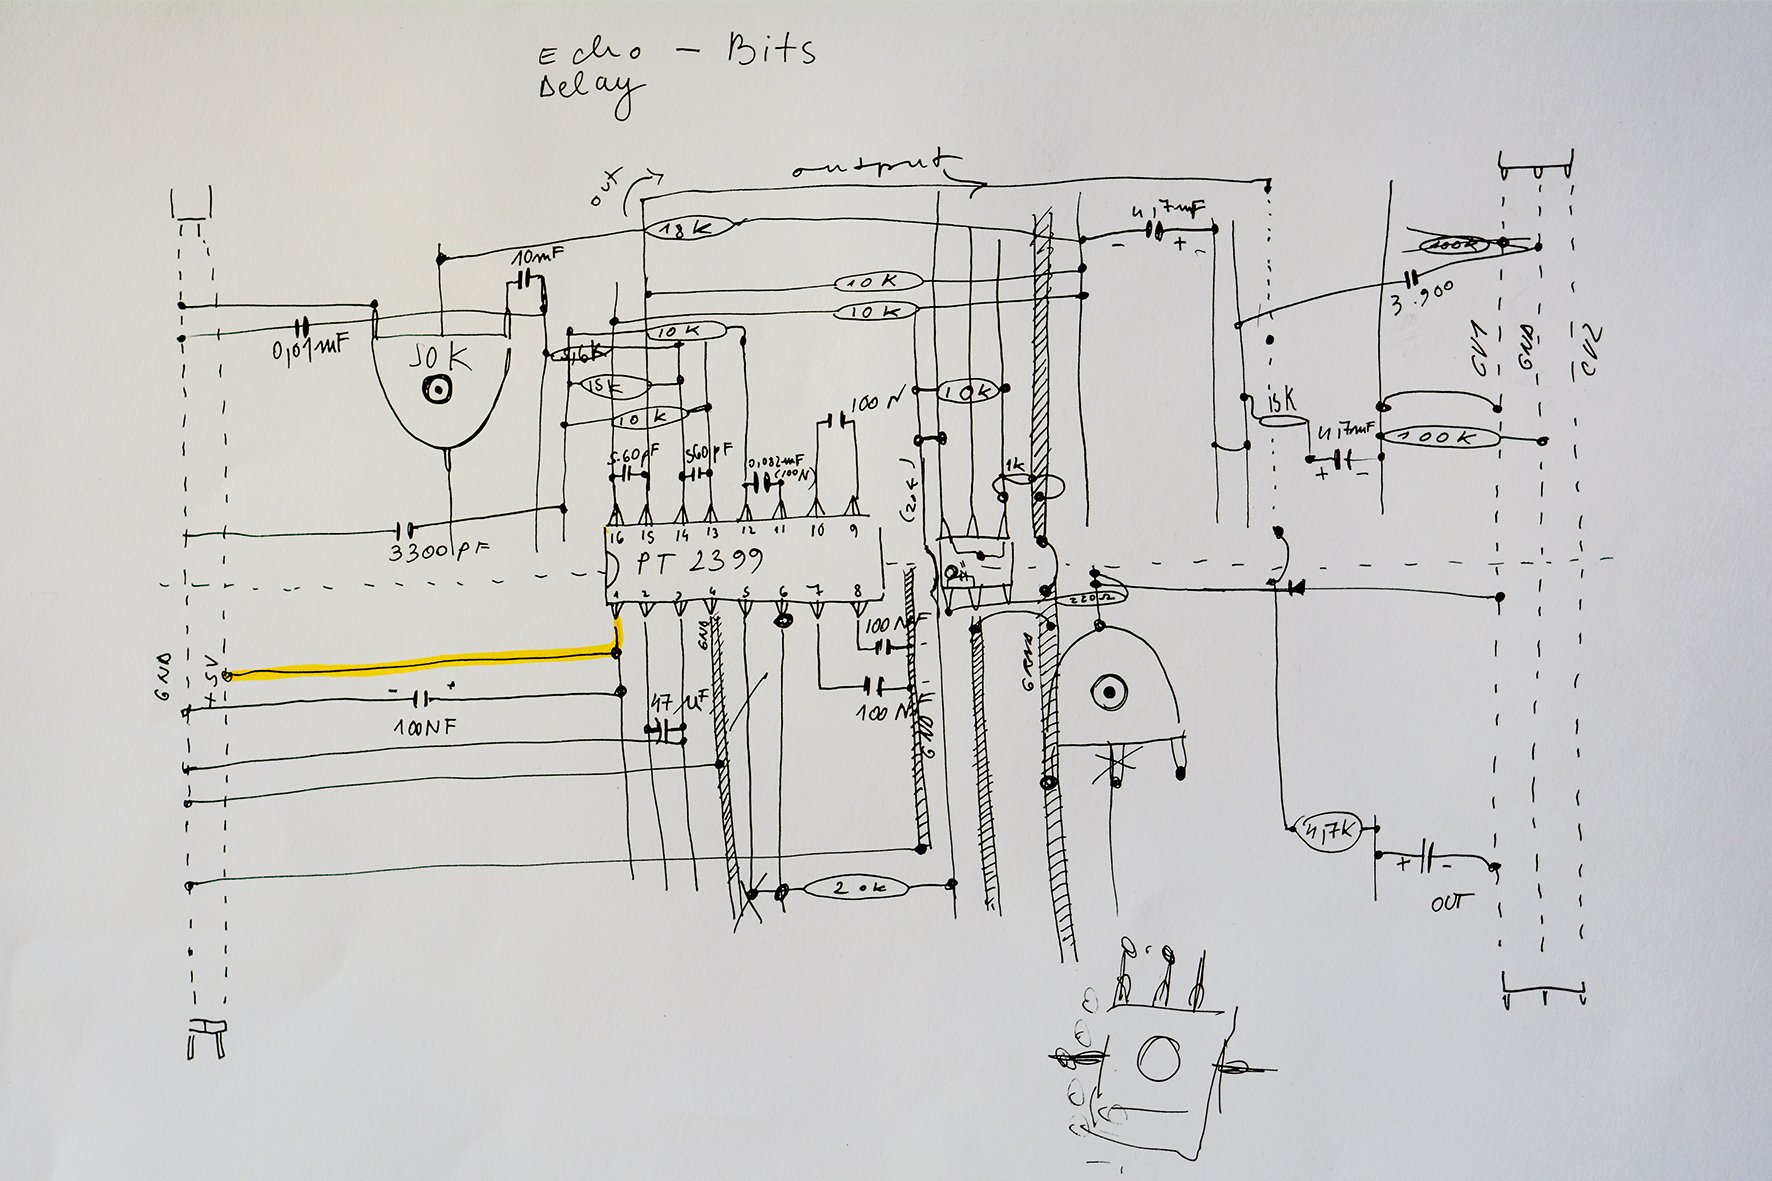 Echo - Bits
Delay
output
out
18K
4,7mF
- + -
10mF
100K
10K
3.900
10K
0,01mF
10K
50K
5,6K
CV1
GND
CV2
15K
10K
15K
10K
100N
4,7mF
100K
+ -
560pF
560pF
0,082mF
(100N)
1k
(20K)
16 15 14 13 12 11 10 9
3300pF
PT 2399
1 2 3 4 5 6 7 8
220Ω
GND
100NF
GND
+5V
GND
- +
100NF
47µF
100N
GND
4,7K
20K
+ -
OUT